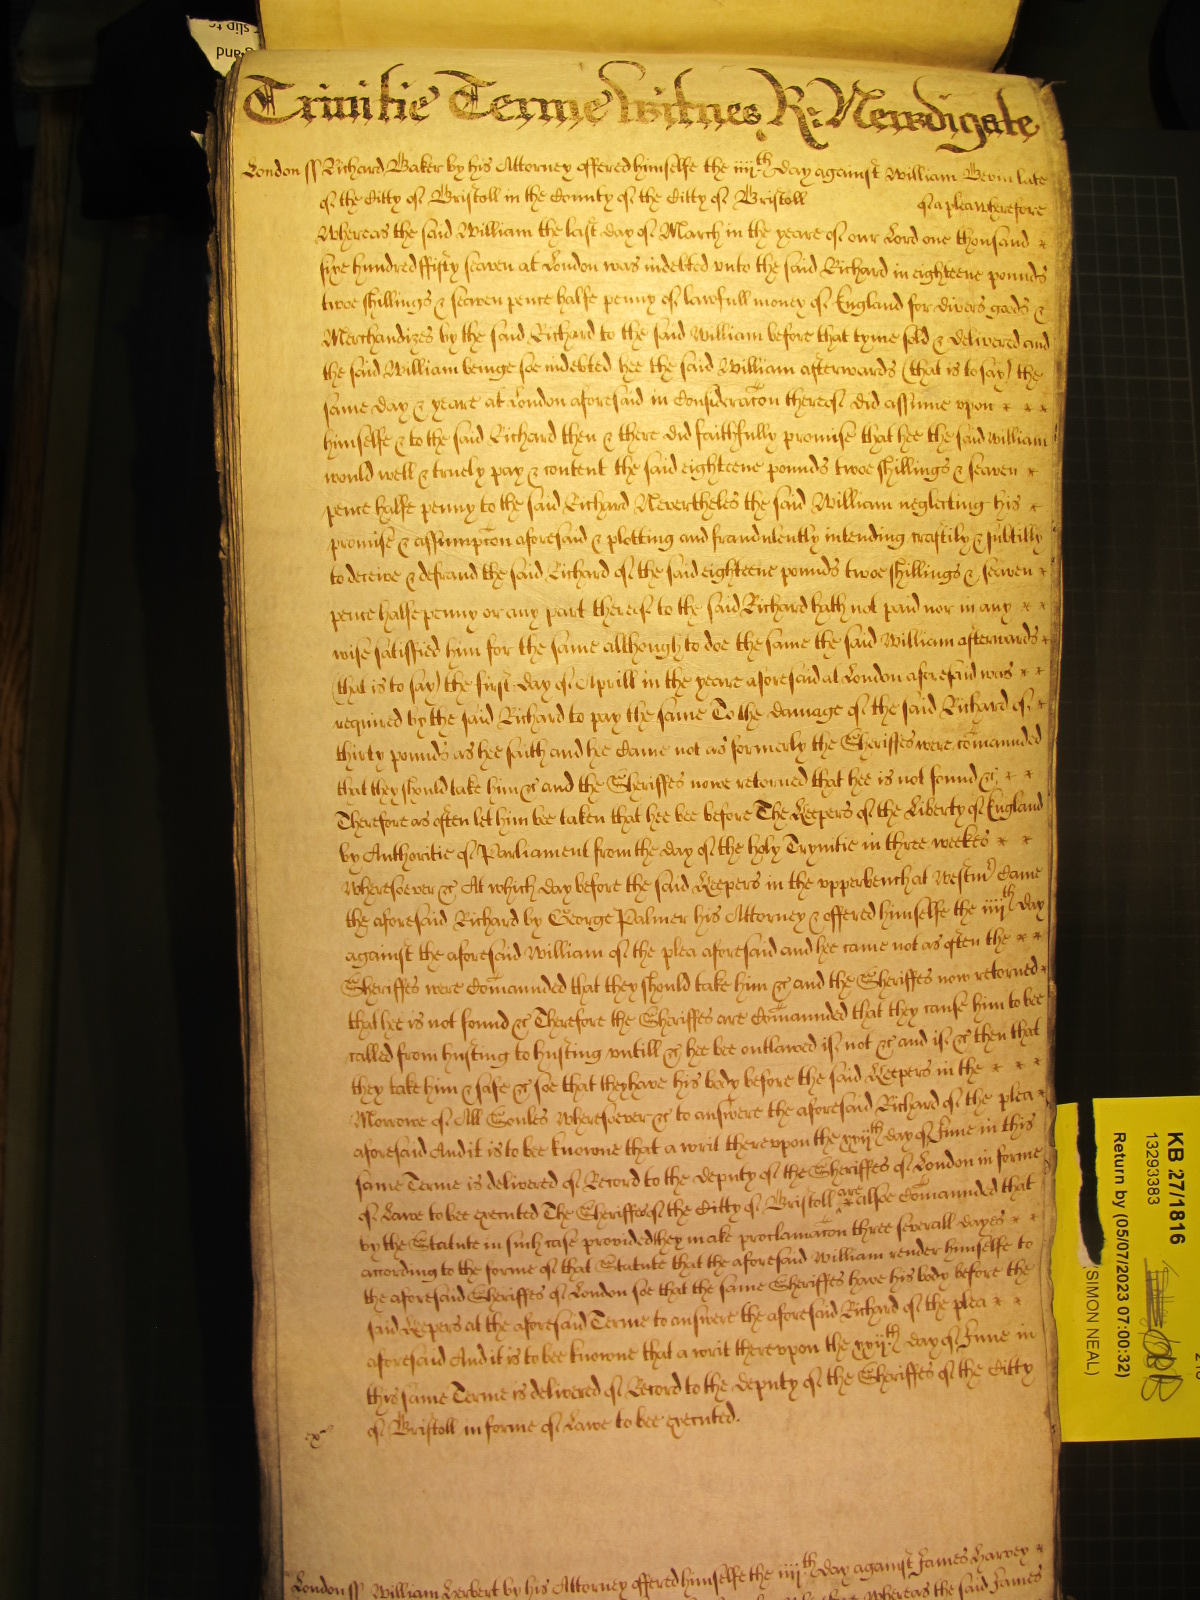 Trinitie Terme Witnes R: Newdigate
London ss Richard Baker by his Attorney offered himselfe the iiijth day against William Bevin late
of the Citty of Bristoll in the County of the Citty of Bristoll of a plea wherefore
Whereas the said William the last day of March in the yeare of our Lord one thousand
sixe hundred ffifty seaven at London was indebted vnto the said Richard in eighteene pounds
twoe shillings & seaven pence halfe penny of lawfull money of England for divers goods &
Merchandizes by the said Richard to the said William before that tyme sold & delivered and
the said William beinge soe indebted hee the said William afterwards (that is to say) the
same day & yeare at London aforesaid in Consideracon thereof did assume vpon
himselfe & to the said Richard then & there did faithfully promise that hee the said William
would well & truely pay & content the said eighteene pounds twoe shillings & seaven
pence halfe penny to the said Richard Nevertheles the said William neglecting his
promise & assumpcon aforesaid & plotting and fraudulently intending craftily & subtilly
to deceive & defraud the said Richard of the said eighteene pounds twoe shillings & seaven
pence halfe penny or any part thereof to the said Richard hath not paid nor in any
wise satisfied him for the same although to doe the same the said William afterwards
(that is to say) the first day of Aprill in the yeare aforesaid at London aforesaid was
required by the said Richard to pay the same To the damage of the said Richard of
thirty pounds as hee saith and he Came not as formerly the Sheriffes were comaunded
that they should take him &c and the Sheriffes nowe retorned that hee is not found &c
Therefore as often let him bee taken that hee bee before The Keepers of the Liberty of England
by Authoritie of Parliament from the day of the holy Trynitie in three weekes
Wheresoever &c At which day before the said Keepers in the vpper bench at Westm) Came
the aforesaid Richard by George Palmer his Attorney & offered himselfe the iiijth day
against the aforesaid William of the plea aforesaid and hee came not as often the
Sheriffes were Comaunded that they should take him &c and the Sheriffes now retorned
that hee is not found &c Therefore the Sheriffes are Comaunded that they cause him to bee
called from husting to husting vntill &c hee bee outlawed if not &c and if &c then that
they take him & safe &c soe that they have his body before the said Keepers in the
Morrowe of All Soules Wheresoever &c to answere the aforesaid Richard of the plea
aforesaid And it is to bee knowne that a writ therevpon the xxijth day of June in this
same Terme is delivered of Record to the deputy of the Sheriffes of London in forme
of Lawe to bee executed The Sheriffes of the Citty of Bristoll are alsoe Comaunded that
by the Statute in such case provided they make proclamacon three severall dayes
according to the forme of that Statute that the aforesaid William render himselfe to
the aforesaid Sheriffes of London soe that the same Sheriffes have his body before the
said Keepers at the aforesaid Terme to answere the aforesaid Richard of the plea
aforesaid And it is to bee knowne that a writ therevpon the xxijth day of June in
this same Terme is delivered of Record to the deputy of the Sheriffes of the Citty
of Bristoll in forme of Lawe to bee executed.
ex
London ss William Herbert by his Attorney offered himselfe the iiijth day against James Harvey
Whereas the said James
KB 27/1816
13293383
Return by (05/07/2023 07:00:32)
SIMON NEAL)
slip to
and